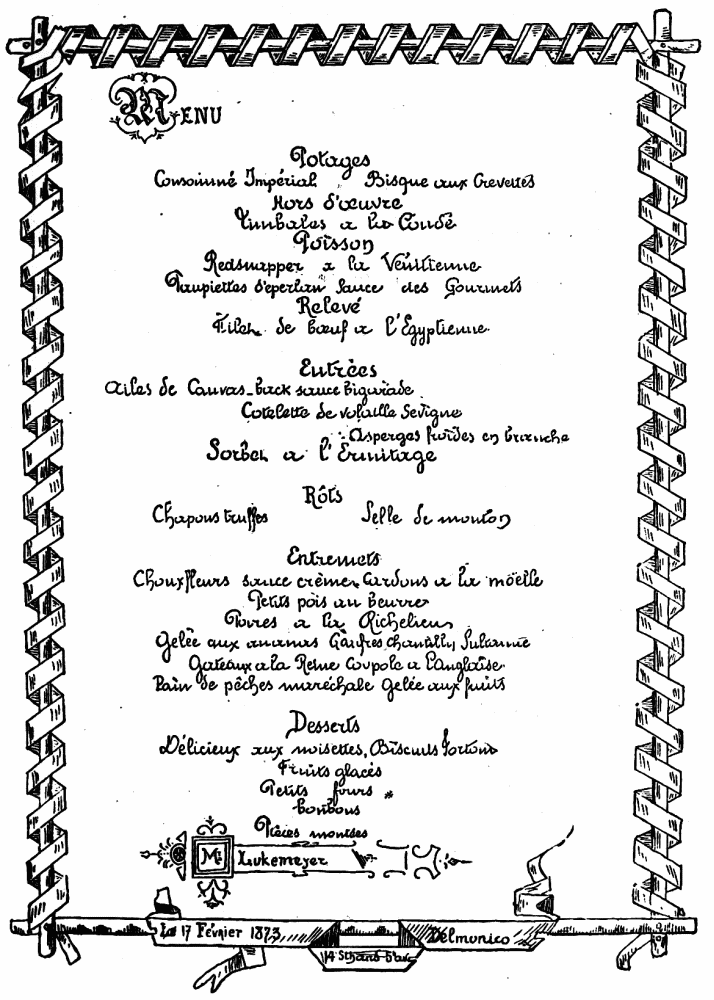 MENU
Potages
Consommé Impérial Bisque aux Crevettes
Hors d'œuvre
Timbales a la Condé
Poisson
Redsnapper a la Vénitienne
Paupiettes d'éperlan Sauce des Gourmets
Relevé
Filet de bœuf a l'Egyptienne
Entrées
Ailes de Canvas-back sauce bigarade
Cotelette de volaille Sevigne
Asperges froides en branche
Sorbet a l'Ermitage
Rôts
Chapons truffes Selle de mouton
Entremets
Chouxfleurs sauce crème, Cardons a la möelle
Petits pois au beurre
Poires a la Richelieu
Gelée aux ananas Gaufres chantilly Sultanne
Gateaux a la Reine Coupole a l'Anglaise
Pain de pêches maréchale Gelée aux fruits
Desserts
Délicieux aux noisettes, Biscuits Tortoni
Fruits glacés
Petits fours
bonbons
Pièces montées
Mr Lukemeyer
Le 17 Février 1873 Delmonico
14 St